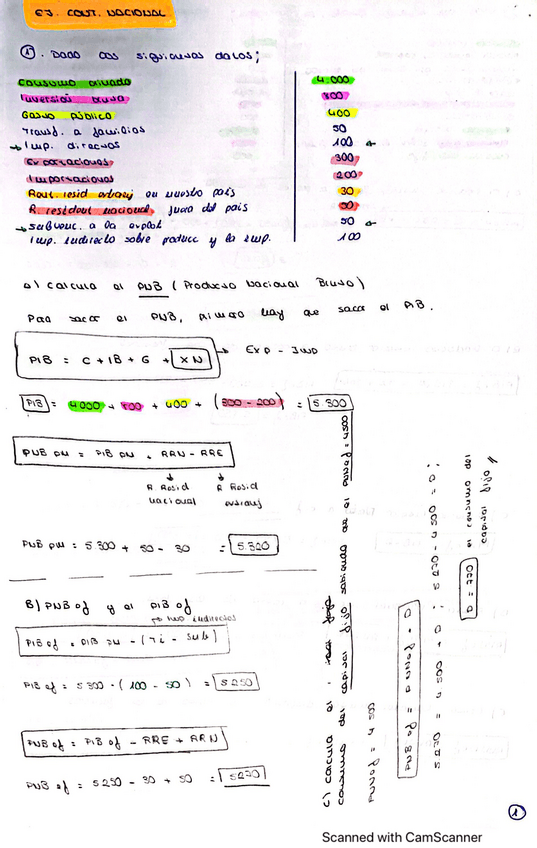 EJ. CONT. NACIONAL
1) . Dado los siguientes datos;
Consumo privado 4.000
Inversión bruta 800
Gasto público 400
Transf. a familias 50
→ Imp. directos 100 ←
Exportaciones 300
Importaciones 200
Rent. resid extranj en nuestro país 30
R. resident nacional fuera del país 50
→ subvenc. a la explot 50 ←
Imp. indirecto sobre producc y la imp. 100
a) calcula el PNB (Producto Nacional Bruto)
Para sacar el PNB, primero hay que sacar el PIB.
PIB = C + IB + G + XN → Exp - Imp
PIB = 4000 + 800 + 400 + (300 - 200) = 5.300
PNB pm = PIB pm + RRN - RRE
R Resid nacional
R Resid extranj
PNB pm = 5.300 + 50 - 30 = 5.320
B) PNB cf y el PIB cf
→ imp indirectos
PIB cf = PIB pm - (Ti - sub)
PIB cf = 5300 - (100 - 50) = 5250
PNB cf = PIB cf - RRE + RRN
PNB cf = 5250 - 30 + 50 = 5270
c) calcula el
consumo del capital fijo sabiendo que el PNNcf = 4500
PNNcf = 4 500
PNB cf = PNNcf + D
5270 = 4 500 + D ; 5270 - 4 500 = D ;
D = 770 es el consumo del capital fijo //
1
Scanned with CamScanner